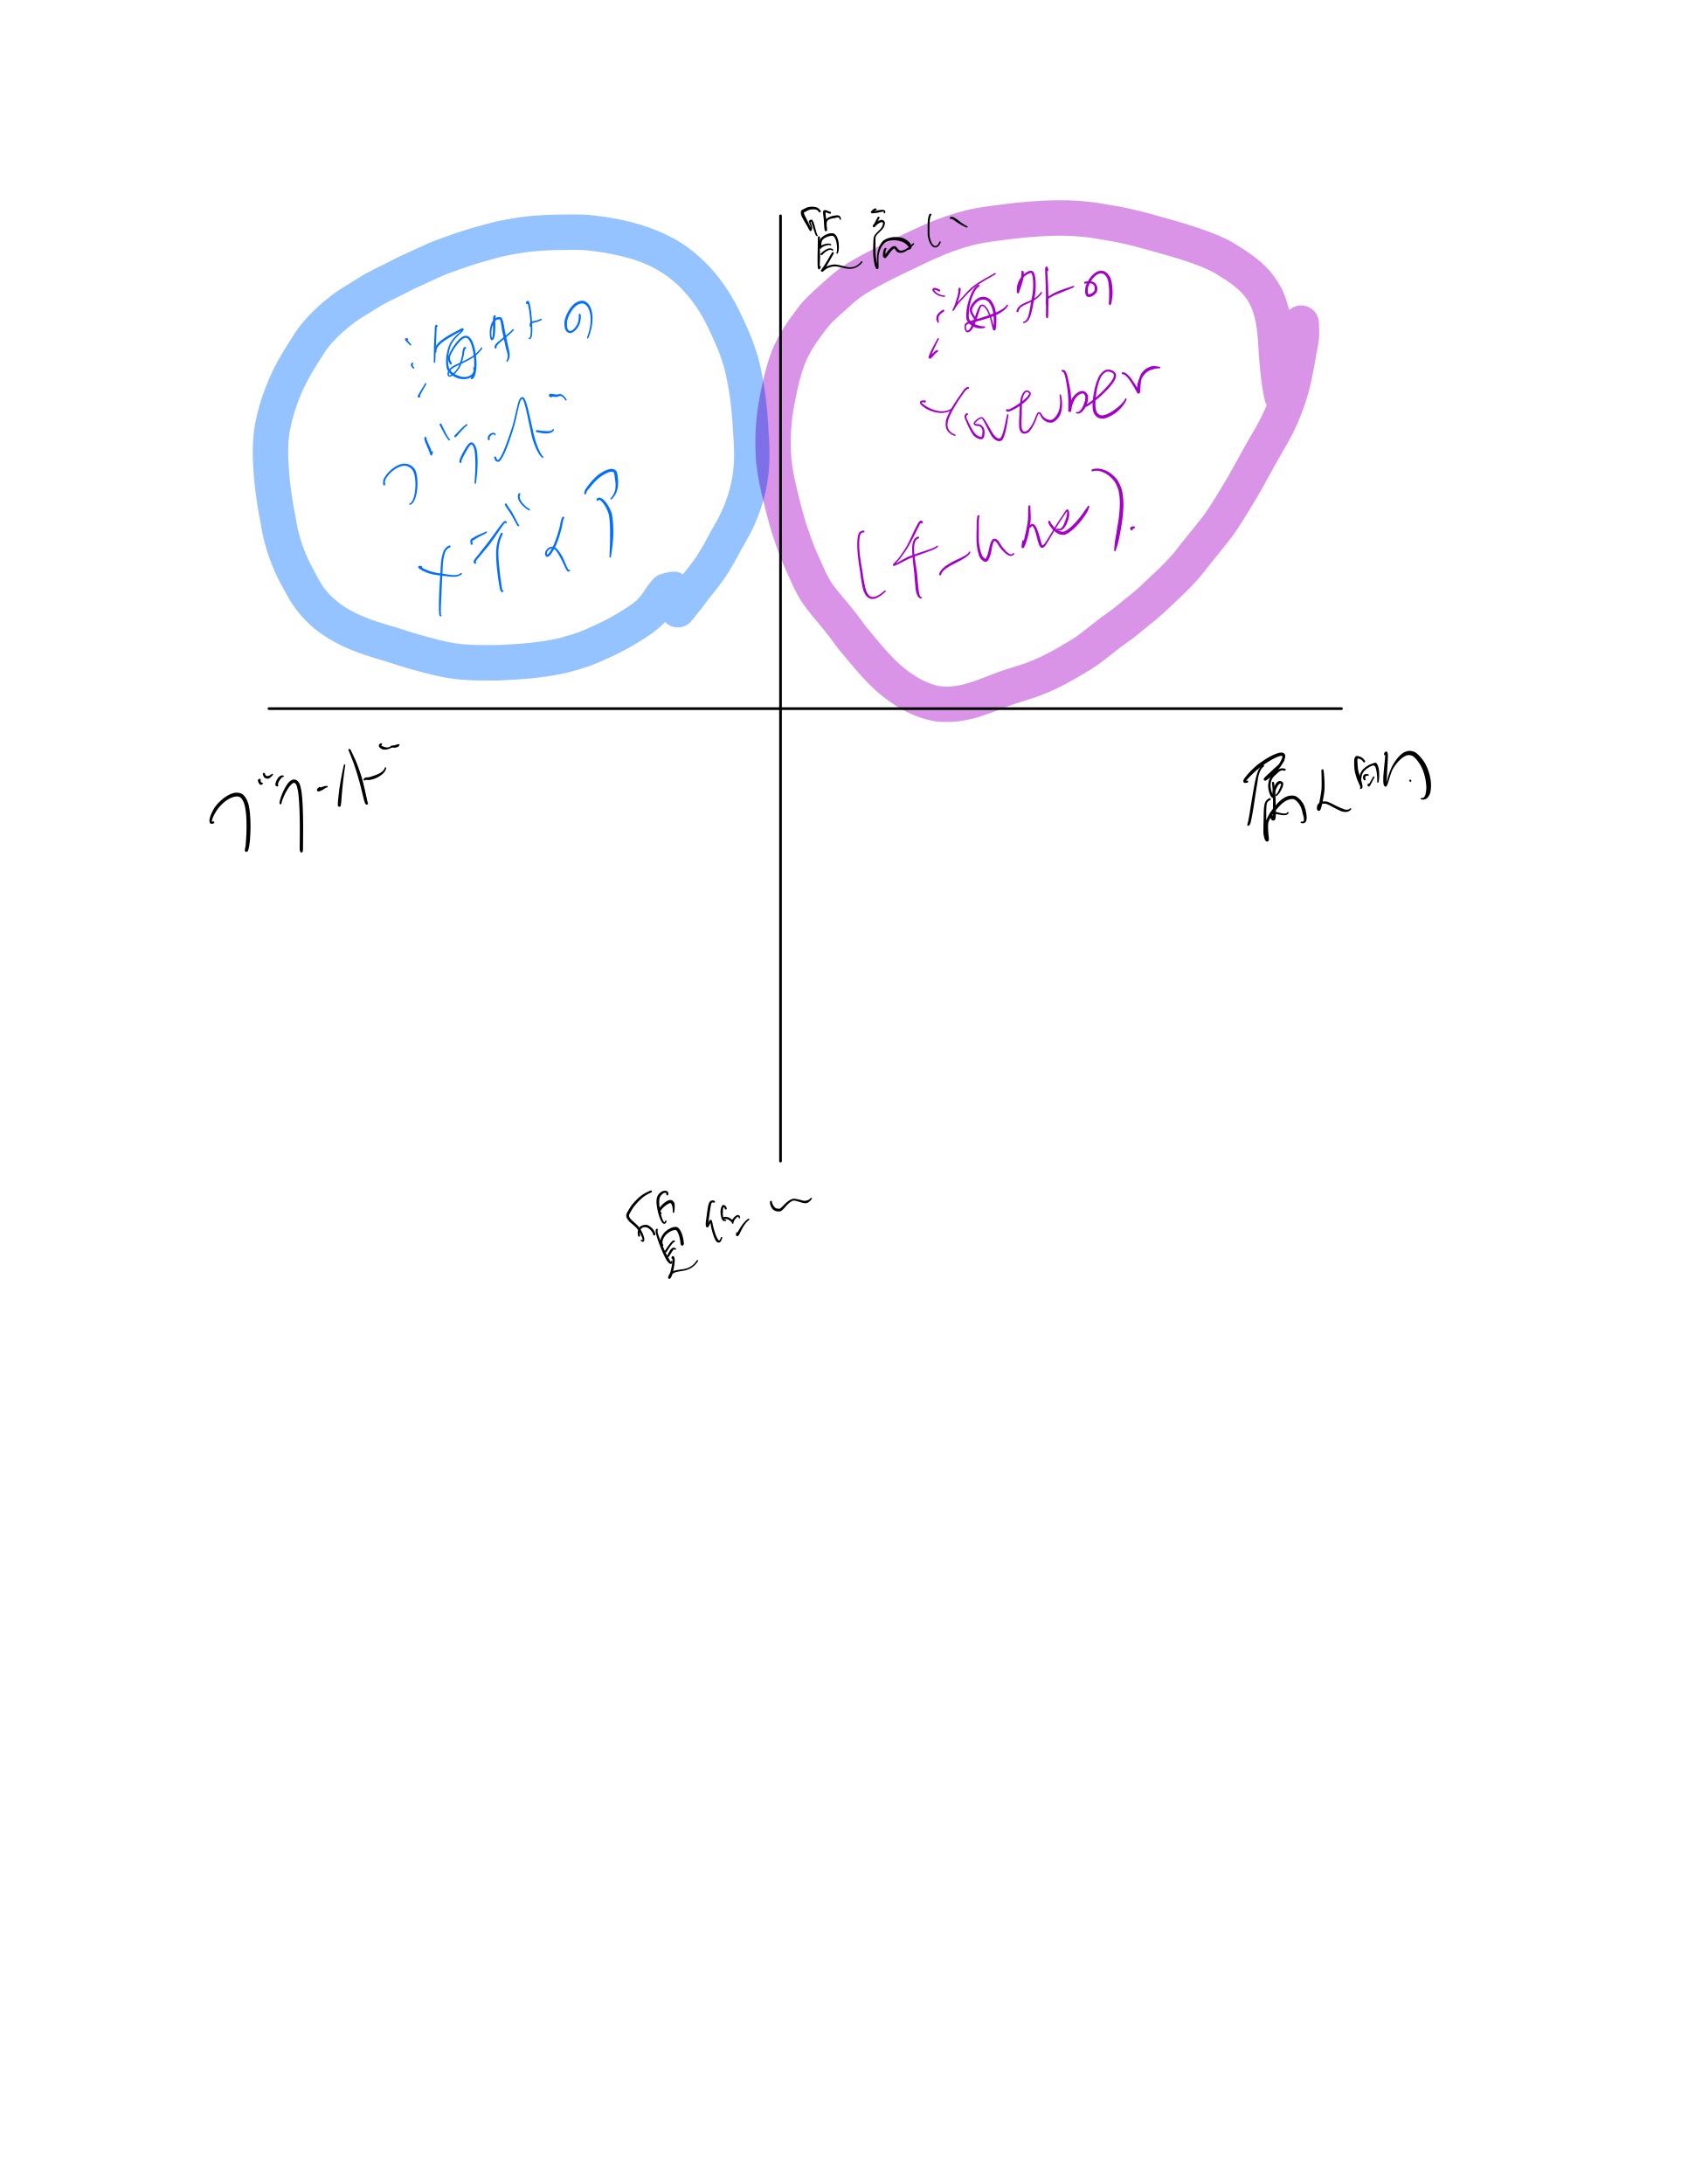 質高い
海外の
ブランド
メディア
海外の
Youtuber
(チームLike).
ブランド
属人的.
質低い